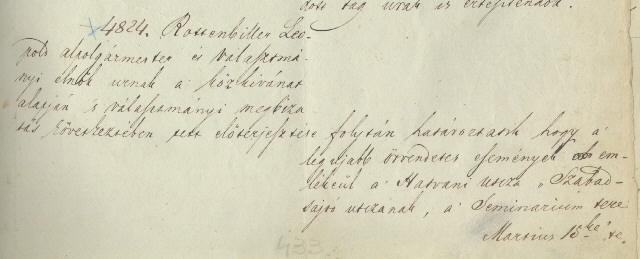 dott tag urak is értesítendők.
4824. Rottenbiller Leo-
pold alpolgármester és választmá-
nyi elnök urnak a közkivánat
alapján s választmányi megbiza-
tás következtében tett előterjesztése folytán határoztatik hogy a
legujabb örvendetes események em-
lékéül a Hatvani utsza "Szabad-
sajtó utszának, a Seminarium tere
Martius 15ke" te.
433